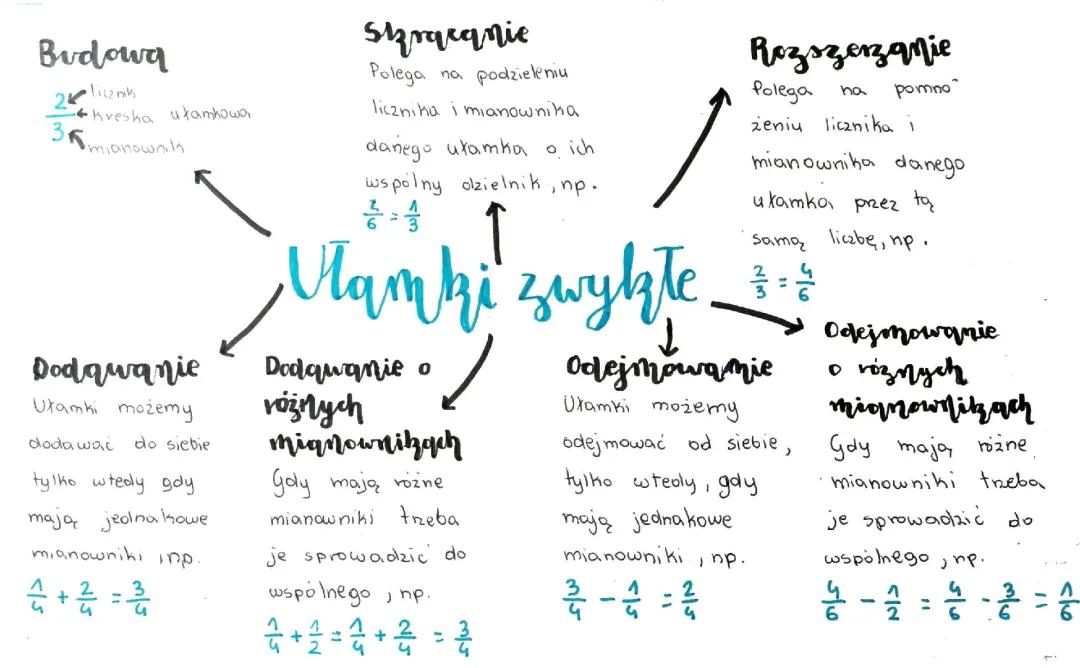 Budowa
2 licznik
kreska ułamkowa
3 mianownik
Skracanie
Polega na podzieleniu
licznika i mianownika
danego ułamka o ich
wspólny dzielnik, np.
2/6 = 1/3
Rozszerzanie
Polega na pomno-
żeniu licznika i
mianownika danego
ułamka przez tą
samą liczbę, np.
2/3 = 4/6
Ułamki zwykłe
Dodawanie
Ułamki możemy
dodawać do siebie
tylko wtedy gdy
mają jednakowe
mianowniki, np.
1/4 + 2/4 = 3/4
Dodawanie o
różnych
mianownikach
Gdy mają różne
mianowniki trzeba
je sprowadzić do
wspólnego, np.
1/4 + 1/2 = 1/4 + 2/4 = 3/4
Odejmowanie
Ułamki możemy
odejmować od siebie,
tylko wtedy, gdy
mają jednakowe
mianowniki, np.
3/4 - 1/4 = 2/4
Odejmowanie
o różnych
mianownikach
Gdy mają różne
mianowniki trzeba
je sprowadzić do
wspólnego, np.
4/6 - 1/2 = 4/6 - 3/6 = 1/6